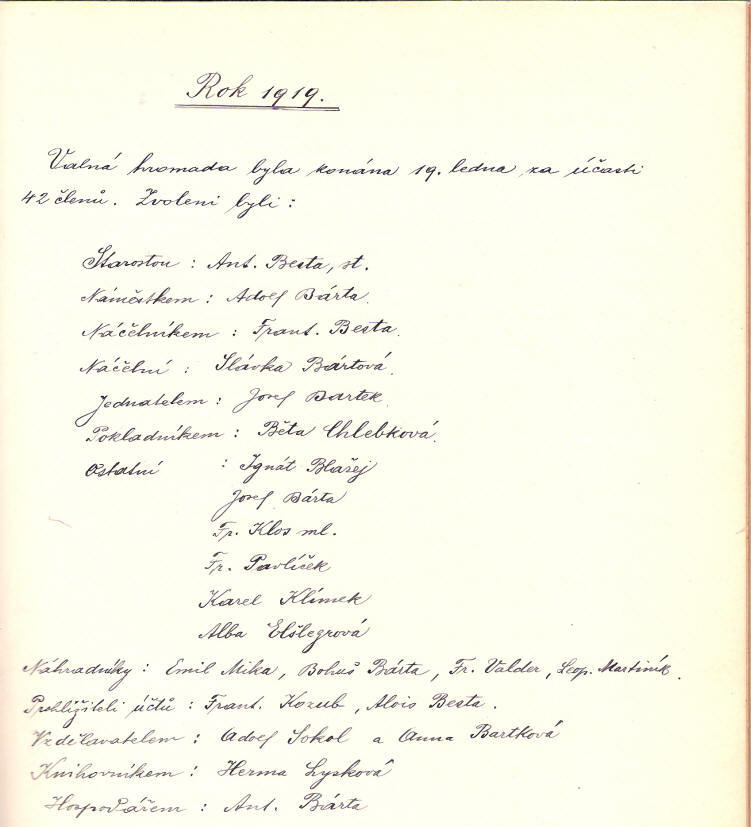 Rok 1919.
Valná hromada byla konána 19. ledna za účasti
42 členů. Zvoleni byli:
Starostou : Ant. Besta, st.
Náměstkem : Adolf Bárta.
Náčelníkem : Frant. Besta.
Náčelní : Slávka Bártová.
Jednatelem : Josef Bartek.
Pokladníkem : Běta Chlebková.
Ostatní : Ignát Blažej
Josef Bárta
Fr. Klos ml.
Fr. Pavlíček
Karel Klímek
Alba Elšlegrová
Náhradníky : Emil Mika, Bohuš Bárta, Fr. Valder, Leop. Martiník.
Prohlížiteli účtů : Frant. Kozub, Alois Besta.
Vzdělavatelem : Adolf Sokol a Anna Bartková
Knihovníkem : Herma Lysková
Hospodářem : Ant. Bárta